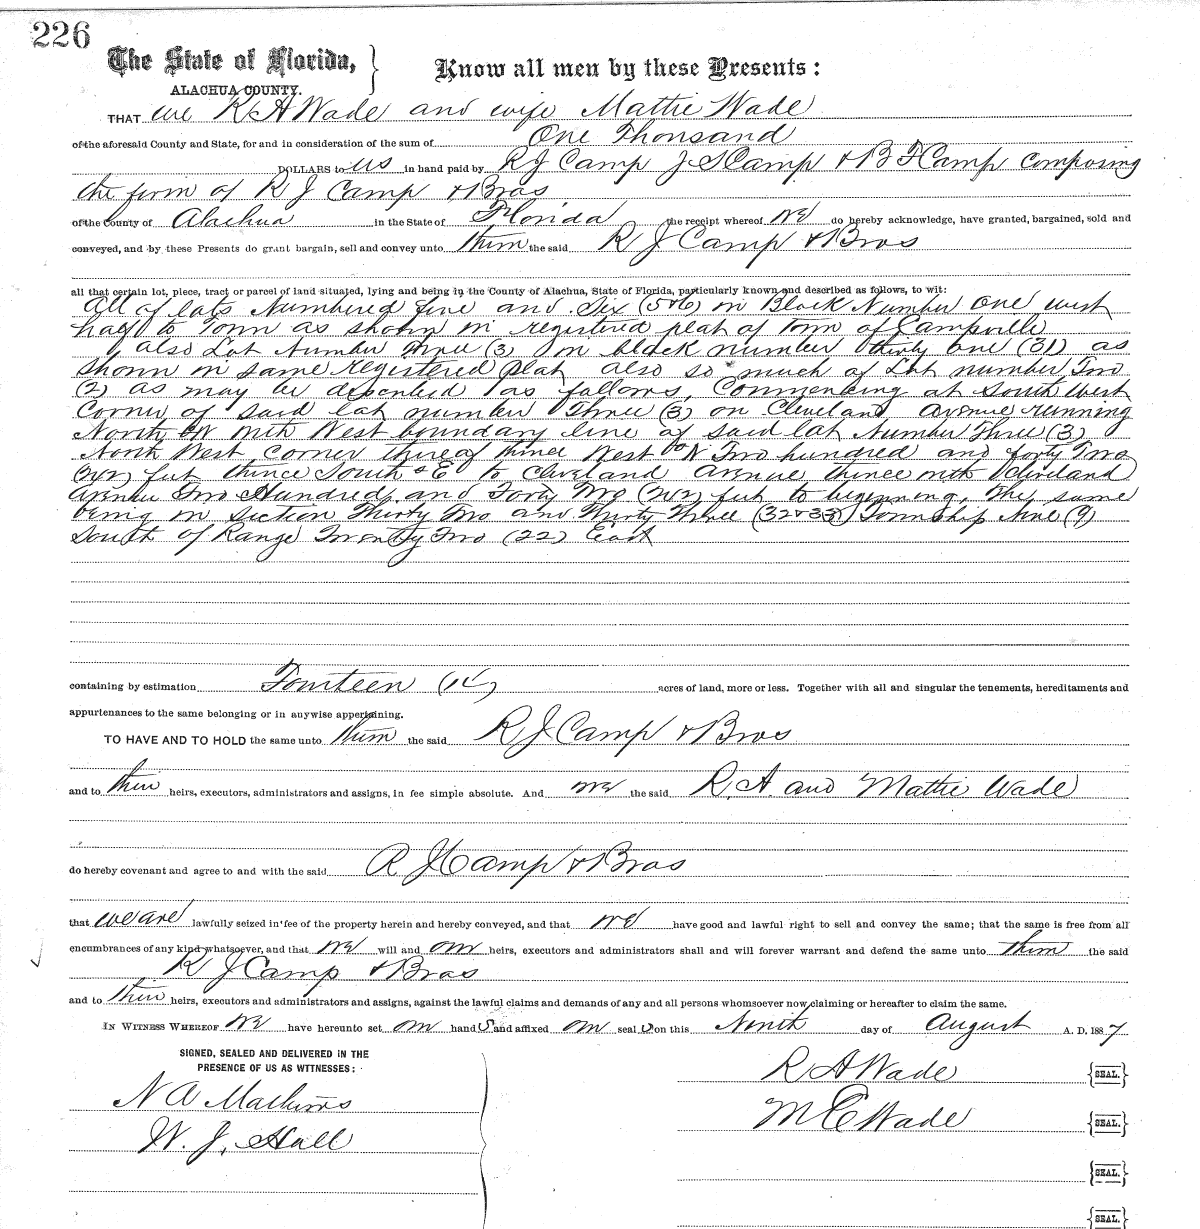 226
The State of Florida,
ALACHUA COUNTY.
Know all men by these Presents:
THAT we R A Wade and wife Mattie Wade
of the aforesaid County and State, for and in consideration of the sum of One Thousand
DOLLARS to us in hand paid by R J Camp J S Camp & B F Camp composing
the firm of R J Camp & Bros
of the County of Alachua in the State of Florida the receipt whereof we do hereby acknowledge, have granted, bargained, sold and
conveyed, and by these Presents do grant bargain, sell and convey unto them the said R J Camp & Bros
all that certain lot, piece, tract or parcel of land situated, lying and being in the County of Alachua, State of Florida, particularly known and described as follows, to wit:
All of lots Numbered five and Six (5&6) in Block Number One west
half to Town as shown in registered plat of Town of Campville
also Lot Number Three (3) in block number thirty one (31) as
shown in same registered plat also so much of Lot number Two
(2) as may be described as follows, Commencing at South West
Corner of said lot number Three (3) on Cleveland avenue running
North W with West boundary line of said lot Number Three (3)
North West Corner thence West Two hundred and forty Two
(242) feet thence South E to Cleveland avenue thence with Cleveland
avenue Two Hundred and Forty Two (242) feet to beginning, The same
being in section Thirty Two and Thirty Three (32&33) Township Nine (9)
South of Range Twenty Two (22) East
containing by estimation Fourteen (14) acres of land, more or less. Together with all and singular the tenements, hereditaments and
appurtenances to the same belonging or in anywise appertaining.
TO HAVE AND TO HOLD the same unto them the said R J Camp & Bros
and to their heirs, executors, administrators and assigns, in fee simple absolute. And we the said R. A. and Mattie Wade
do hereby covenant and agree to and with the said R J Camp & Bros
that we are lawfully seized in fee of the property herein and hereby conveyed, and that we have good and lawful right to sell and convey the same; that the same is free from all
encumbrances of any kind whatsoever, and that we will and our heirs, executors and administrators shall and will forever warrant and defend the same unto them the said
R J Camp & Bros
and to their heirs, executors and administrators and assigns, against the lawful claims and demands of any and all persons whomsoever now claiming or hereafter to claim the same.
IN WITNESS WHEREOF we have hereunto set our hands and affixed our seals on this Ninth day of August A. D. 1887
SIGNED, SEALED AND DELIVERED IN THE
PRESENCE OF US AS WITNESSES:
N A Mathews
W. J. Hall
R A Wade {SEAL.}
M E Wade {SEAL.}
{SEAL.}
{SEAL.}